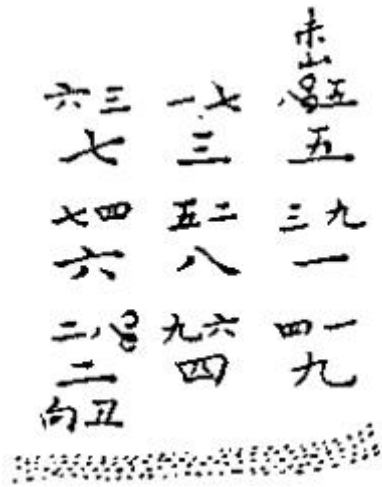 未山
六三 一七 八五
七 三 五
七四 五二 三九
六 八 一
二八 九六 四一
二 四 九
向丑